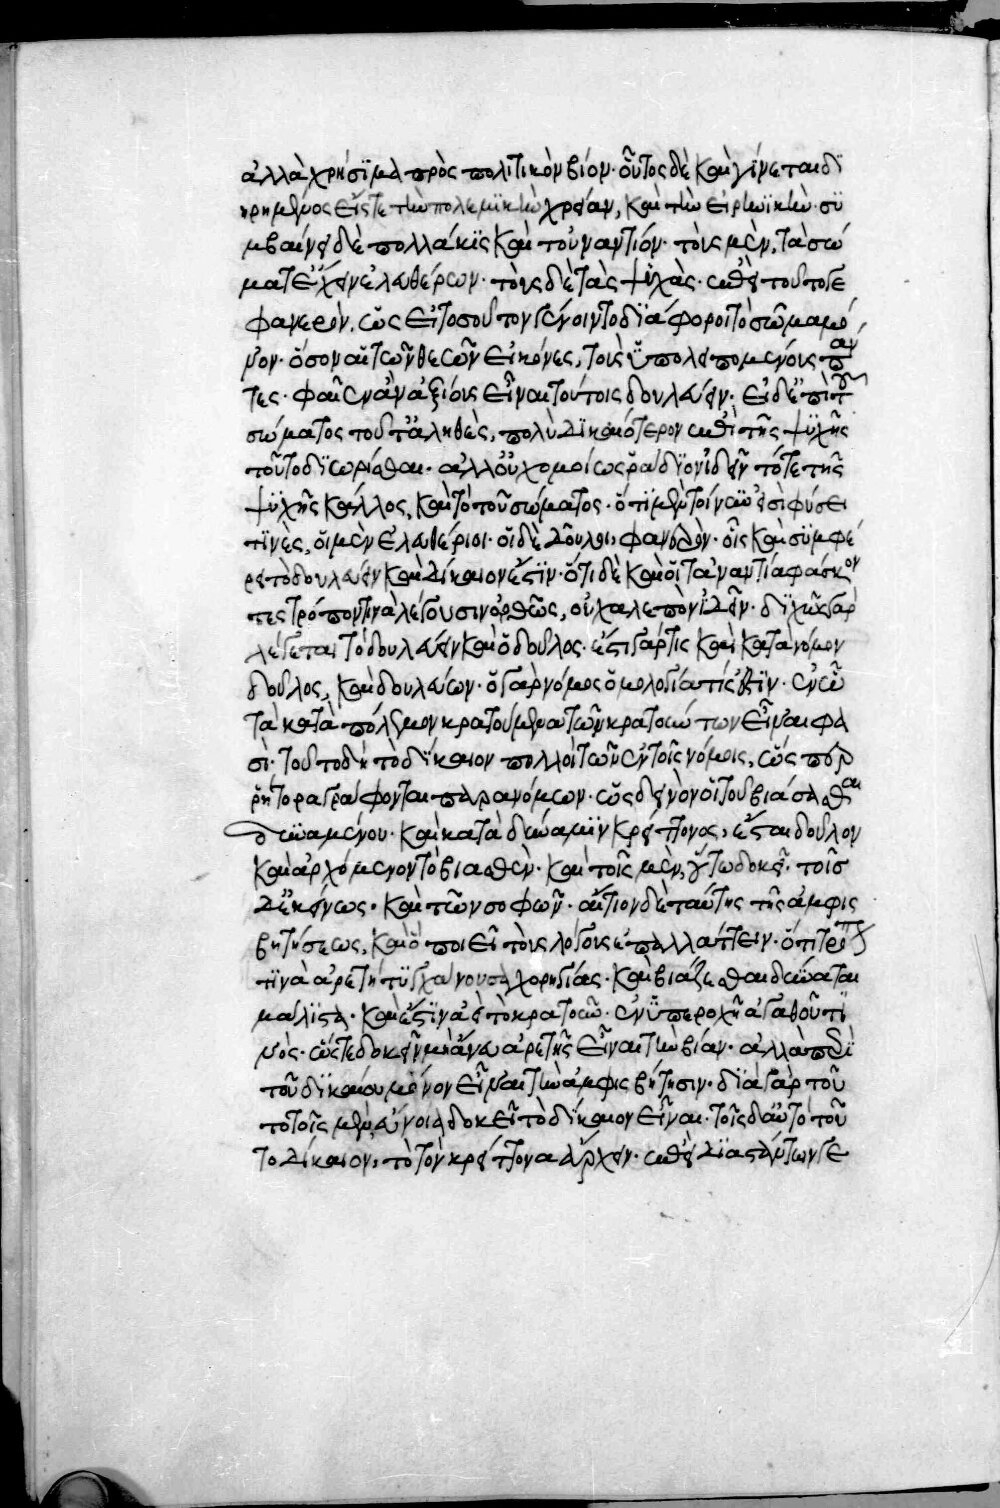 ἀλλὰ χρήσϊμα πρὸς πολιτικὸν βίον· οὗτος δὲ καὶ γίνεται δϊ
ηρημένος εἴς τε τὴν πολεμϊκὴν χρείαν, καὶ τὴν εἰρηνϊκὴν· σϋ
μβαίνει δὲ πολλάκϊς καὶ τοὐναντίον· τοὺς μὲν, τὰ σώ
ματ' ἔχειν ἐλευθέρων· τοὺς δὲ τὰς ψϋχὰς· ἐπεὶ τοῦτό γε
φανερὸν, ὡς εἰ τοσοῦτον γένοιντο δϊάφοροι τὸ σῶμα μό
νον· ὅσον αἱ τῶν θεῶν εἰκόνες, τοὺς ὑπολειπομένους πάν
τες· φαῖεν ἂν ἀξίους εἶναι τούτοις δουλεύειν· εἰ δ' ἐπὶ τοῦ
σώματος τοῦτ' ἀληθὲς, πολὺ δϊκαιότερον ἐπὶ τῆς ψϋχῆς
τοῦτο δϊωρίσθαι· ἀλλ' οὐχ ὁμοίως ῥάδϊον ἰδεῖν τό τε τῆς
ψϋχῆς κάλλος, καὶ τὸ τοῦ σώματος· ὅτϊ μὲν τοίνυν εἰσὶ φύσει
τϊνὲς, οἱ μὲν ἐλεύθεροι· οἱ δὲ δοῦλοι, φανερὸν· οἷς καὶ σϋμφέ
ρει τὸ δουλεύειν καὶ δίκαιον ἐστϊν· ὅτι δὲ καὶ οἱ τἀναντία φάσκον
τες τρόπον τινὰ λέγουσιν ὀρθῶς, οὐ χαλεπὸν ἰδεῖν· δϊχῶς γὰρ
λέγεται τὸ δουλεύειν καὶ ὁ δοῦλος· ἔστι γάρ τις καὶ κατὰ νόμον
δοῦλος, καὶ δουλεύων· ὁ γὰρ νόμος ὁμολογία τίς ἐστϊν· ἐν ᾧ
τὰ κατὰ πόλεμον κρατούμενα τῶν κρατούντων εἶναι φα
σὶ· τοῦτο δὴ τὸ δϊκαιον πολλοὶ τῶν ἐν τοῖς νόμοις, ὥσπερ
ῥήτορα γράφονται παρανόμων· ὡς δεινὸν εἰ τοῦ βιάσασθαι
δυναμένου· καὶ κατὰ δύναμϊν κρείττονος, ἔσται δοῦλον
καὶ ἀρχόμενον τὸ βιασθὲν· καὶ τοῖς μὲν, οὕτω δοκεῖ· τοῖς
δ' ἐκείνως· καὶ τῶν σοφῶν· αἴτιον δὲ ταύτης τῆς ἀμφισ
βητήσεως, καὶ ὃ ποιεῖ τοὺς λόγους ἐπαλλάττειν· ὅτι τρόπον
τϊνὰ ἀρετὴ τϋγχάνουσα χορηγίας· καὶ βιάζεσθαι δύναται
μάλϊστα· καὶ ἔστϊν ἀεὶ τὸ κρατοῦν· ἐν ὑπεροχῇ ἀγαθοῦ τϊ
νὸς· ὥστε δοκεῖν μὴ ἄνευ ἀρετῆς εἶναι τὴν βίαν· ἀλλὰ περὶ
τοῦ δϊκαίου μόνον εἶναι τὴν ἀμφισβήτησιν· δϊὰ γὰρ τοῦ
το τοῖς μὲν, εὔνοια δοκεῖ τὸ δίκαιον εἶναι· τοῖς δ' αὐτὸ τοῦ
το δίκαιον, τὸ τὸν κρείττονα ἄρχειν· ἐπεὶ δϊαστάντων γε